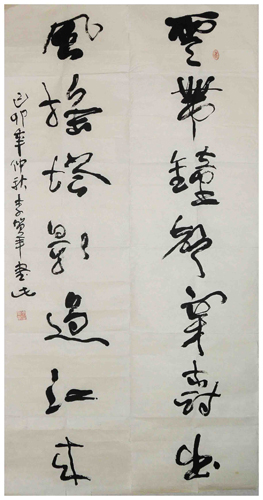 雲帶鐘聲穿樹出
風搖塔影過江來
己卯年仲秋李賀年書